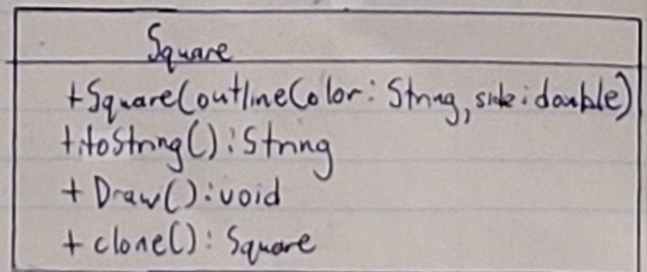 Square
+Square(outlineColor: String, side: double)
+toString(): String
+ Draw(): void
+ clone(): Square